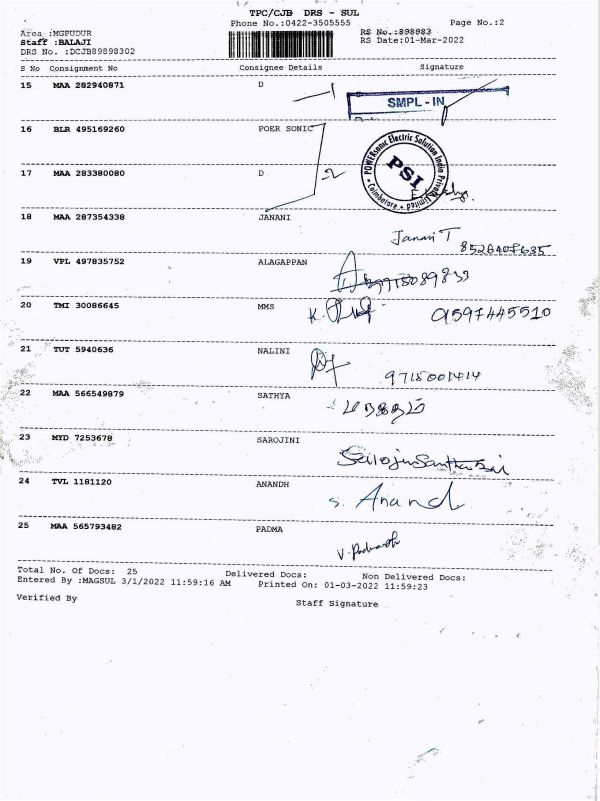 TPC/CJB DRS - SUL
Phone No.:0422-3505555 Page No.:2
Area :MGPUDUR RS No.:898983
Staff :BALAJI RS Date:01-Mar-2022
DRS No. :DCJB89898302
S No Consignment No Consignee Details Signature
15 MAA 282940871 D 1 SMPL - IN
16 BLR 495169260 POER SONIC
POWERsonic Electric Solution India Private Limited Coimbatore PSI
17 MAA 283380080 D 2
18 MAA 287354338 JANANI
Janani T
19 VPL 497835752 ALAGAPPAN
20 TMI 30086645 MMS
9597445510
21 TUT 5940636 NALINI
22 MAA 566549879 SATHYA
23 MYD 7253678 SAROJINI
24 TVL 1181120 ANANDH
S. Anand
25 MAA 565793482 PADMA
Total No. Of Docs: 25 Delivered Docs: Non Delivered Docs:
Entered By :MAGSUL 3/1/2022 11:59:16 AM Printed On: 01-03-2022 11:59:23
Verified By Staff Signature